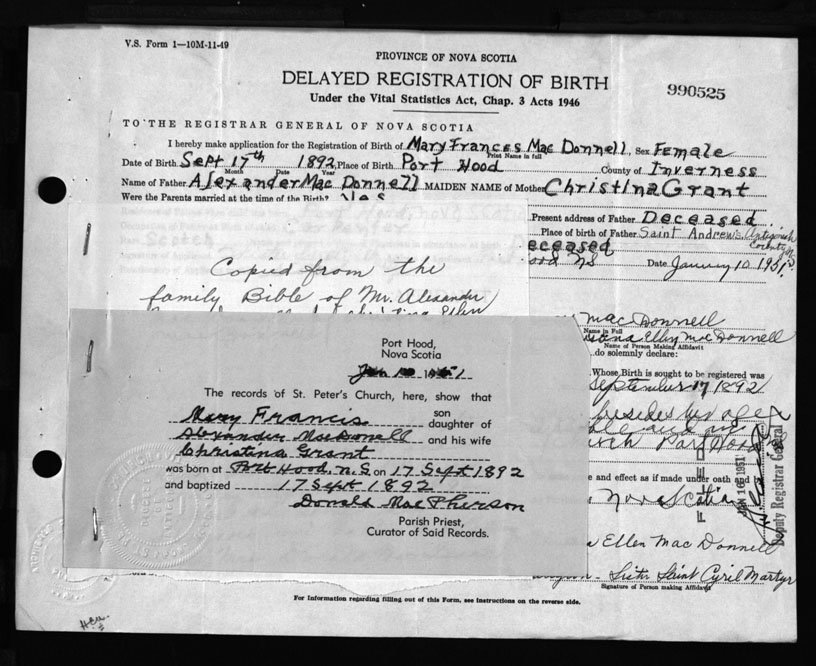 V.S. Form 1—10M-11-49
PROVINCE OF NOVA SCOTIA
DELAYED REGISTRATION OF BIRTH
990525
Under the Vital Statistics Act, Chap. 3 Acts 1946
TO THE REGISTRAR GENERAL OF NOVA SCOTIA
I hereby make application for the Registration of Birth of Mary Frances Mac Donnell, Sex Female
Print Name in full
Date of Birth Sept 17th 1892, Place of Birth Port Hood County of Inverness
Month Date Year
Name of Father Alexander Mac Donnell MAIDEN NAME of Mother Christina Grant
Were the Parents married at the time of the Birth? Yes
Present address of Father Deceased
Place of birth of Father Saint Andrews Antigonish County
Deceased
Date January 10 1951
Copied from the
family Bible of Mr. Alexander
Mac Donnell
Name in Full
Ellen Mac Donnell
Name of Person Making Affidavit
do solemnly declare:
Whose Birth is sought to be registered was
September 17 1892
Port Hood
and effect as if made under oath and
Nova Scotia
Ellen Mac Donnell
Sister Saint Cyril Martyr
Signature of Person making Affidavit
FILED
JAN 16 1951
Deputy Registrar General
Port Hood,
Nova Scotia
Jan 10 1951
The records of St. Peter's Church, here, show that
Mary Francis son
daughter of
Alexander MacDonell and his wife
Christina Grant
was born at Port Hood, N.S on 17 Sept 1892
and baptized 17 Sept 1892
Donald MacPherson
Parish Priest,
Curator of Said Records.
For Information regarding filling out of this Form, see Instructions on the reverse side.